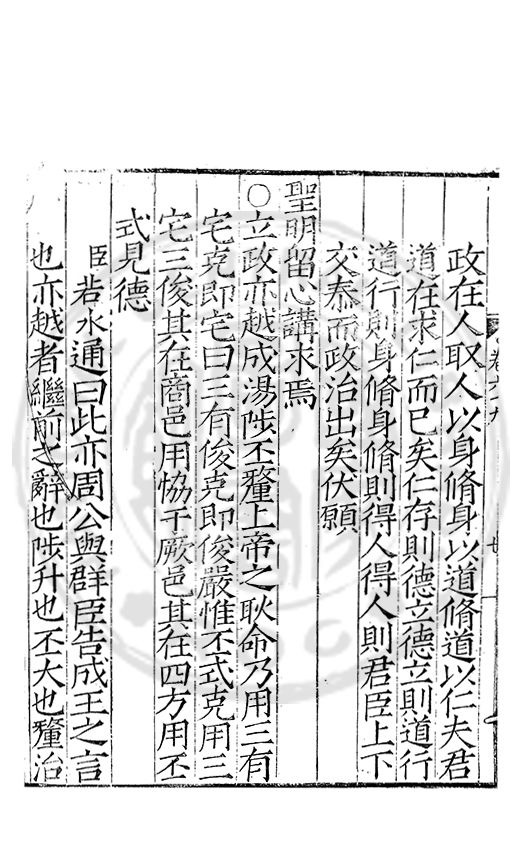 政在人取人以身脩身以道脩道以仁夫君
道在求仁而已矣仁存則德立德立則道行
道行則身脩身脩則得人得人則君臣上下
交泰而政治出矣伏願
聖明留心講求焉
○立政亦越成湯陟丕釐上帝之耿命乃用三有
宅克即宅曰三有俊克即俊嚴惟丕式克用三
宅三俊其在商邑用恊于厥邑其在四方用丕
式見德
臣若水通曰此亦周公與群臣告成王之言
也亦越者繼前之辭也陟升也丕大也釐治